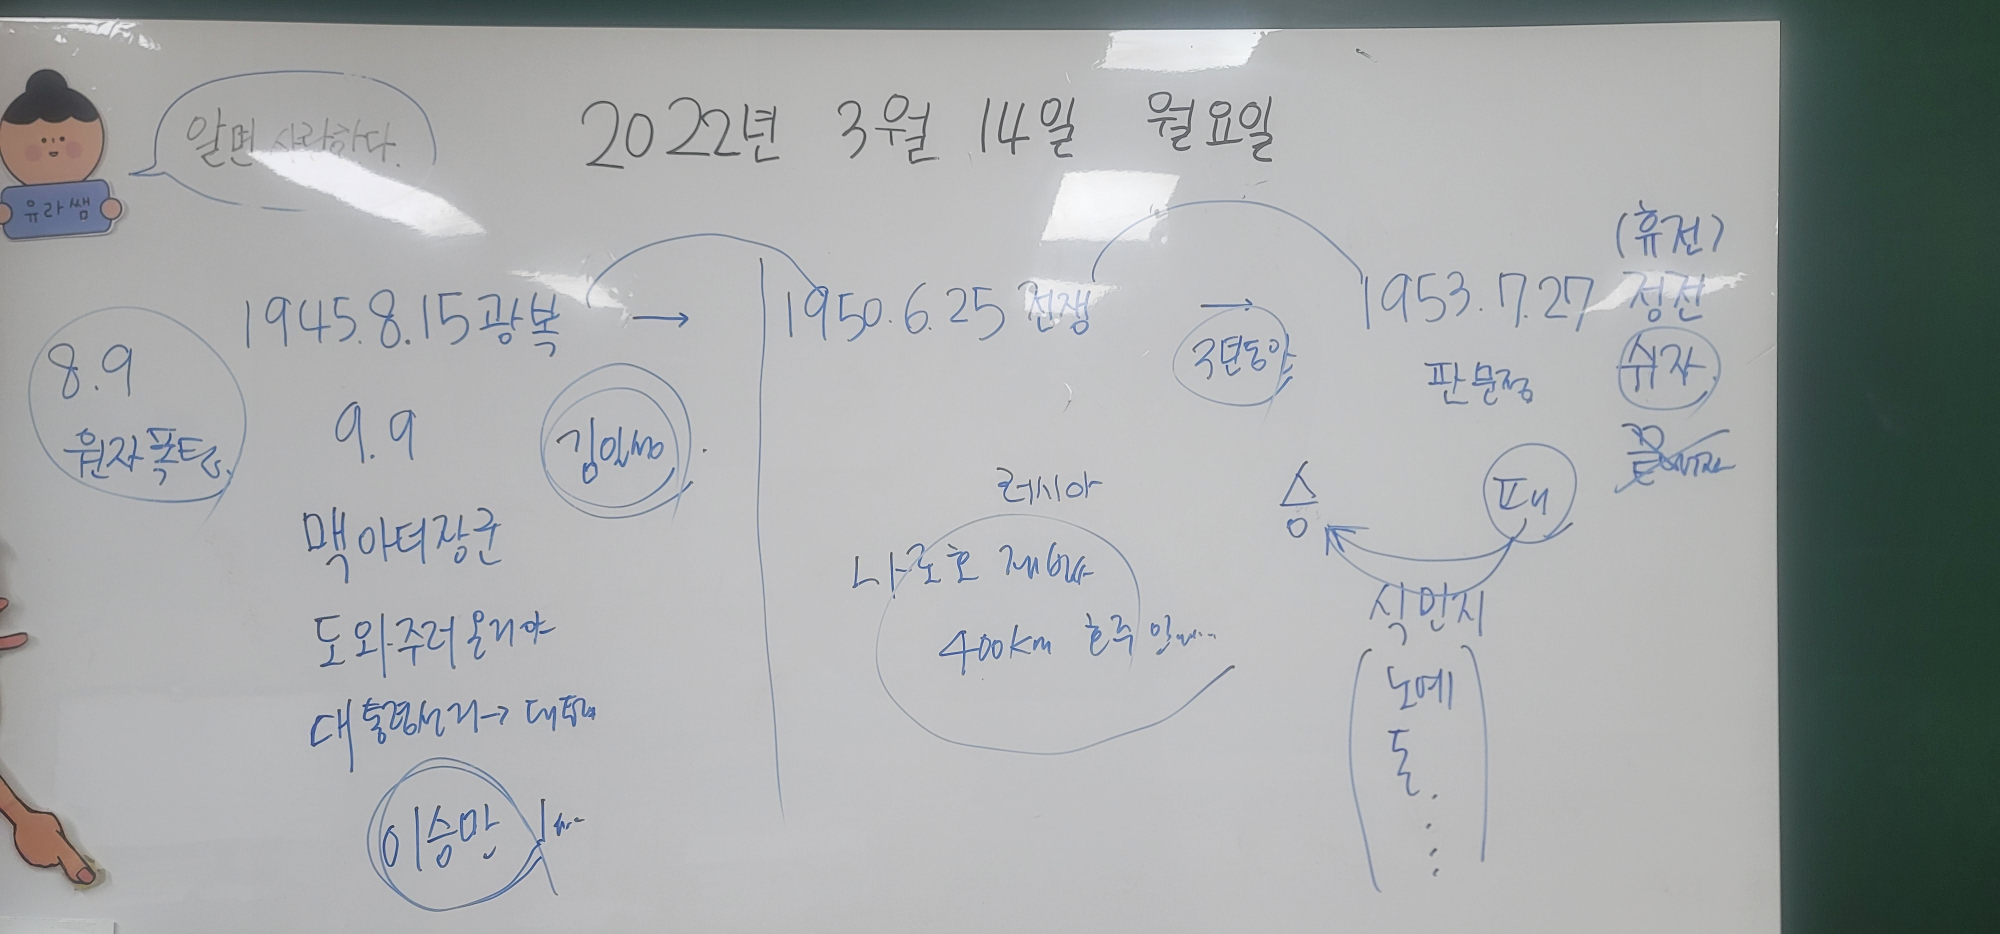 알면 사랑하다.
유라쌤
2022년 3월 14일 월요일
(휴전)
1945.8.15 광복 → 1950.6.25 전쟁 → 1953.7.27 정전
8.9
원자폭탄
3년동안
판문점
쉬자
9.9
김일성
맥아더장군
도와주러 올거야
대통령선거→
이승만
러시아
나로호
400km 호주
승
패
식민지
노예
돈